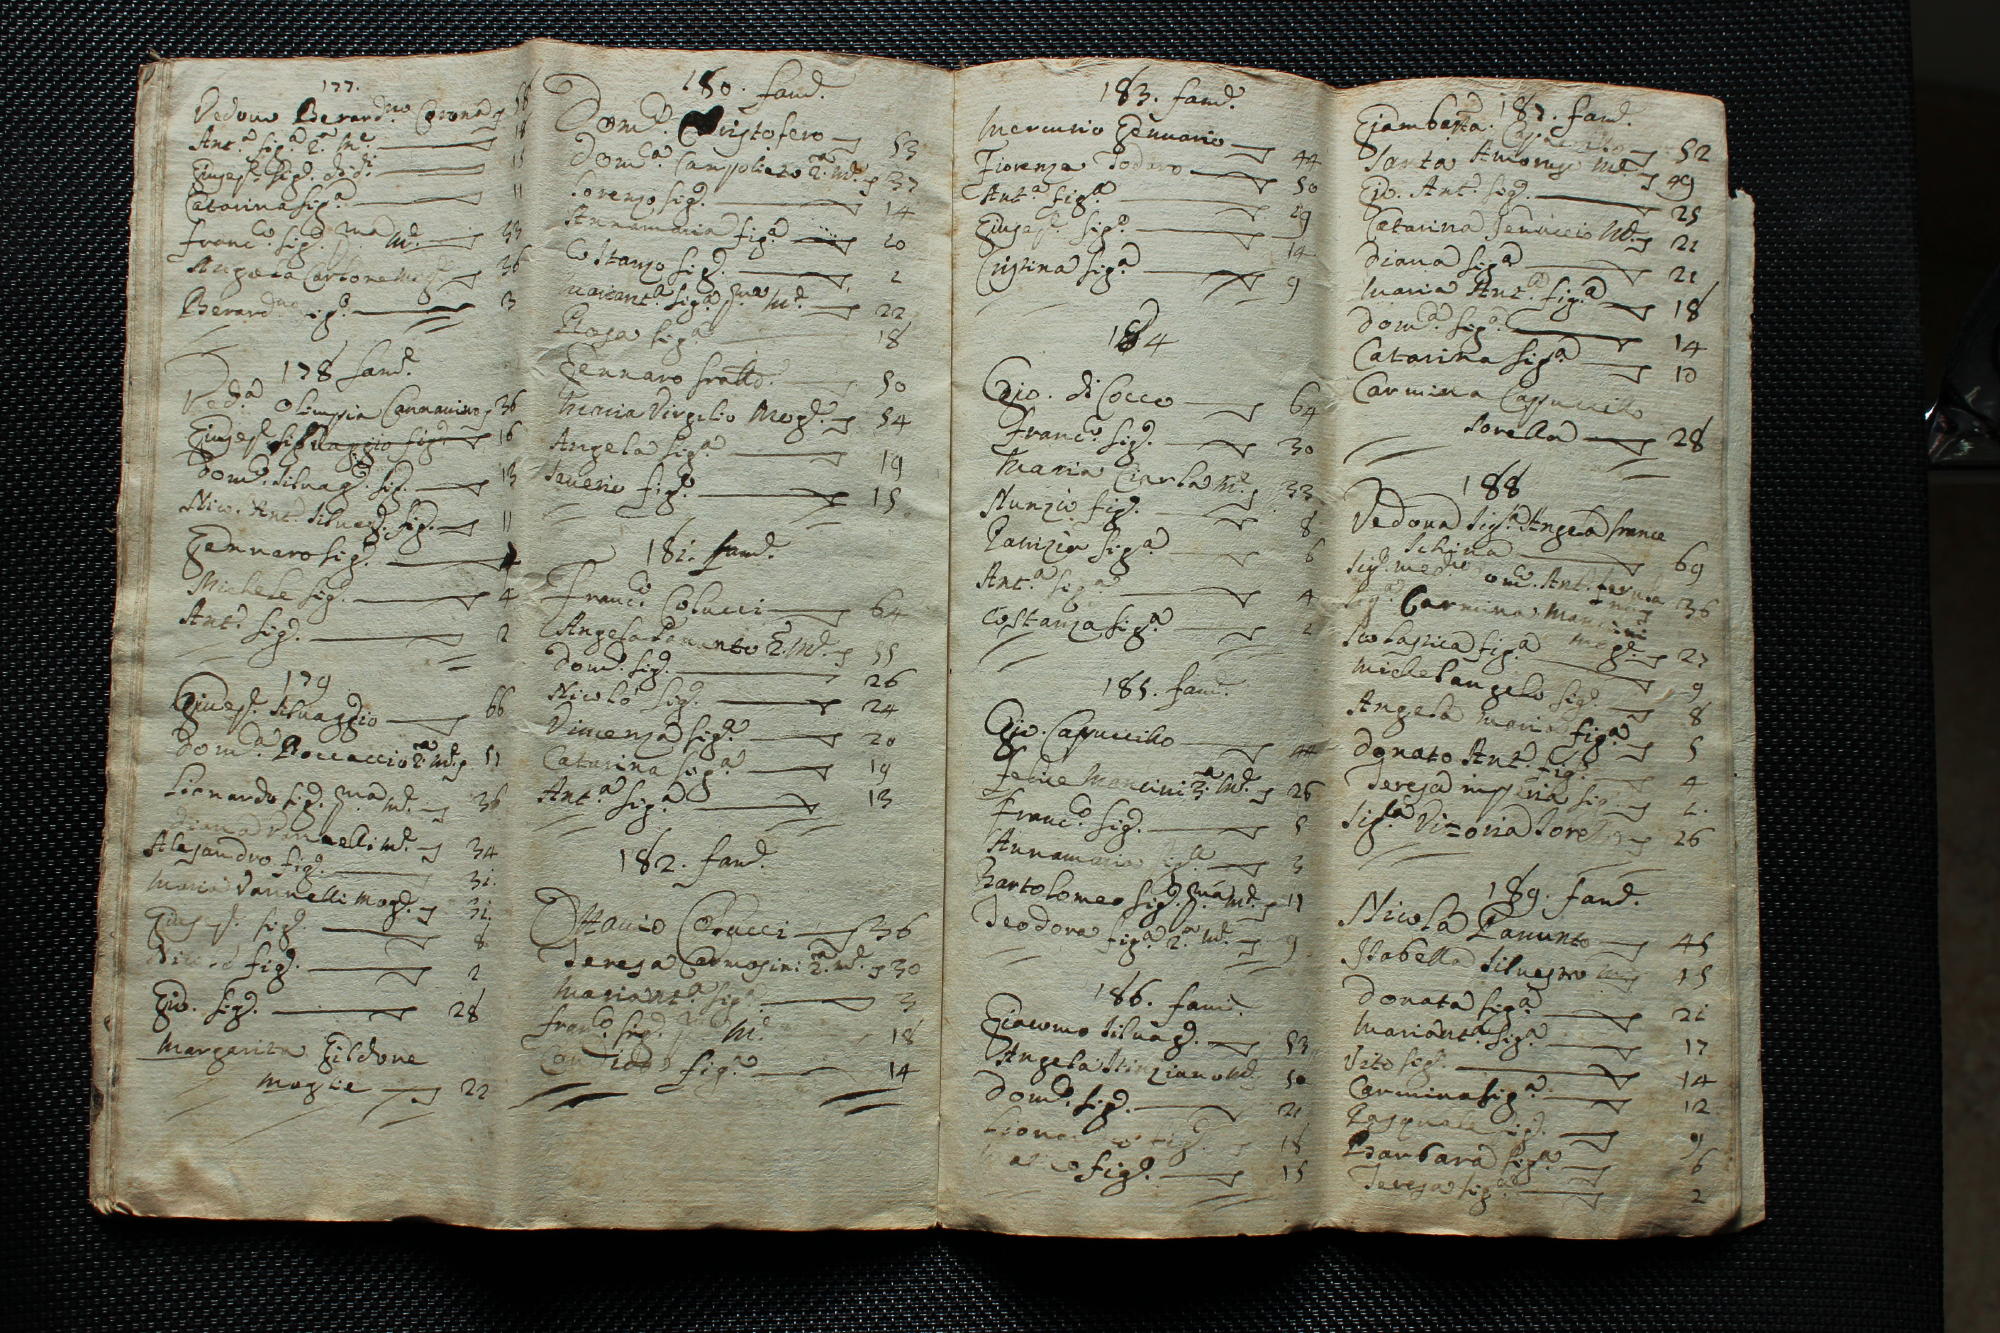 177.
Vedovo Berard.no Corona 58
Ant.a fig.a 2.a M.e 18
Giusep.e fig.o di d.i 15
Catarina fig.a 11
Franc.o fig. p.ma M.e 33
Angela Carbone Mog.e 36
Berard.no fig.o 3
178 fam.a
Ved.a Olimpia Cannavina 36
Giusep.e Silvaggio fig.o 16
Dom.co Silvag.o fig. 13
Nic. Ant.o Silvag.o fig. 11
Gennaro fig.o
Michele fig.o 4
Ant.o fig.o 2
179
Giusep.e Silvaggio 66
Dom.a Boccaccio 2.a M.e 51
Lionardo fig. p.ma M.e 36
Vannelli M.e 34
Alesandro fig. 31.
Maria Vannelli Mog.e 31.
Giusep.e fig.o 8
fig.o 2
Gio. fig.o 28
Margarita Gildone
moglie 22
180. fam.a
Dom.co Cristofero 53
Dom.a Campolieto 2.a M.e 37
Lorenzo fig.o 14
Annamaria fig.a 10
Costanzo fig.o 2
Mariant.a fig.a p.ma M.e 22
Rosa fig.a 18
Gennaro fratello 50
Virgilio Mog.e 54
Angela fig.a 19
Saverio fig.o 15
181. fam.a
Franc.o Colucci 64
Angela Panunto 2.a M.e 55
Dom.co fig.o 26
Nicolò fig.o 24
Vincenza fig.a 20
Catarina fig.a 19
Ant.a fig.a 13
182. fam.a
Ottavio Colucci 36
Teresa Carmosini 2.a M.e 30
Mariant.a fig.a 3
Franc.o fig.o p. M.e 18
fig.a 14
183. fam.a
Mercurio Gennario 44
Fiorenza Podaro 50
Ant.a fig.a 19
Giusep.e fig.o 14
Cristina fig.a 9
184
Gio. di Cocco 64
Franc.o fig.o 30
Maria Ciarla M.e 33
Nunzio fig.o 8
Patrizia fig.a 6
Ant.a fig.a 4
Costanza fig.a 2
185. fam.a
Gio. Capuccillo 44
Felice Mancini 2.a M.e 26
Franc.o fig.o 5
Annamaria fig.a 3
Bartolomeo fig.o p.ma M.e 11
Teodora fig.a 2.a M.e 9
186. fam.a
Giacomo Silvag.o 53
Angela M.e 50
Dom.co fig.o 21
fig.o 18
fig.o 15
187. fam.a
Giambatta. Capuccillo 52
Santa Amoruso M.e 49
Gio. Ant.o fig.o 25
Catarina Iennaccio M.e 21
Diana fig.a 21
Maria Ant.a fig.a 18
Dom.a fig.a 14
Catarina fig.a 10
Carmina Capuccillo
sorella 28
188
Vedova Sig.a Angela France
schina 69
Sig.r med.co Dom.co Ant.o 36
Sig.a Carmina Mancini
mog.e 27
Scolastica fig.a 9
Michelangelo fig.o 8
Angela Maria fig.a 5
Donato Ant.o fig.o 4
Teresa fig. 2.
Sig.ra Vittoria Sorella 26
189. fam.a
Nicola Panunto 45
Isabella Silvagno M.e 15
Donata fig.a 21
Mariant.a fig.a 17
Vito fig.o 14
Carmina fig.a 12
Pasquale fig.o 9
Barbara fig.a 6
Teresa fig.a 2